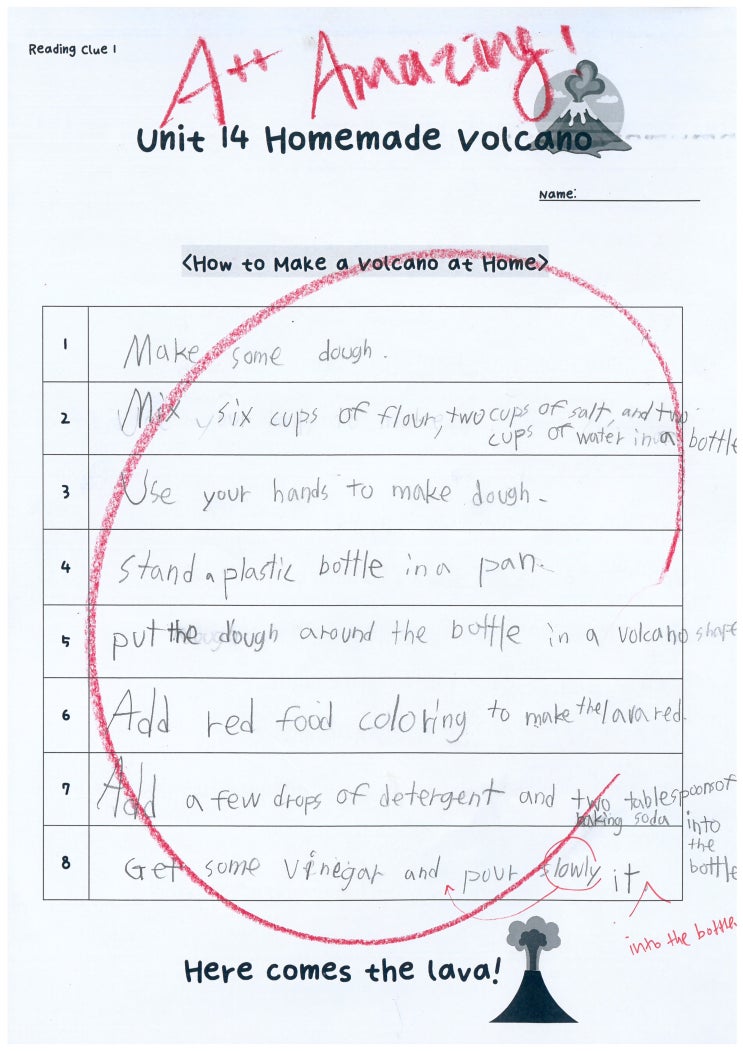 Reading Clue 1
A++ Amazing!
Unit 14 Homemade Volcano
Name:
<How to Make a Volcano at Home>
1 Make some dough.
2 Mix six cups of flour, two cups of salt, and two
cups of water in a bottle
3 Use your hands to make dough.
4 Stand a plastic bottle in a pan.
5 put the dough around the bottle in a volcano shape
6 Add red food coloring to make the lava red.
7 Add a few drops of detergent and two tablespoons of
baking soda into
the
bottle
8 Get some vinegar and pour slowly it
into the bottle
Here comes the lava!